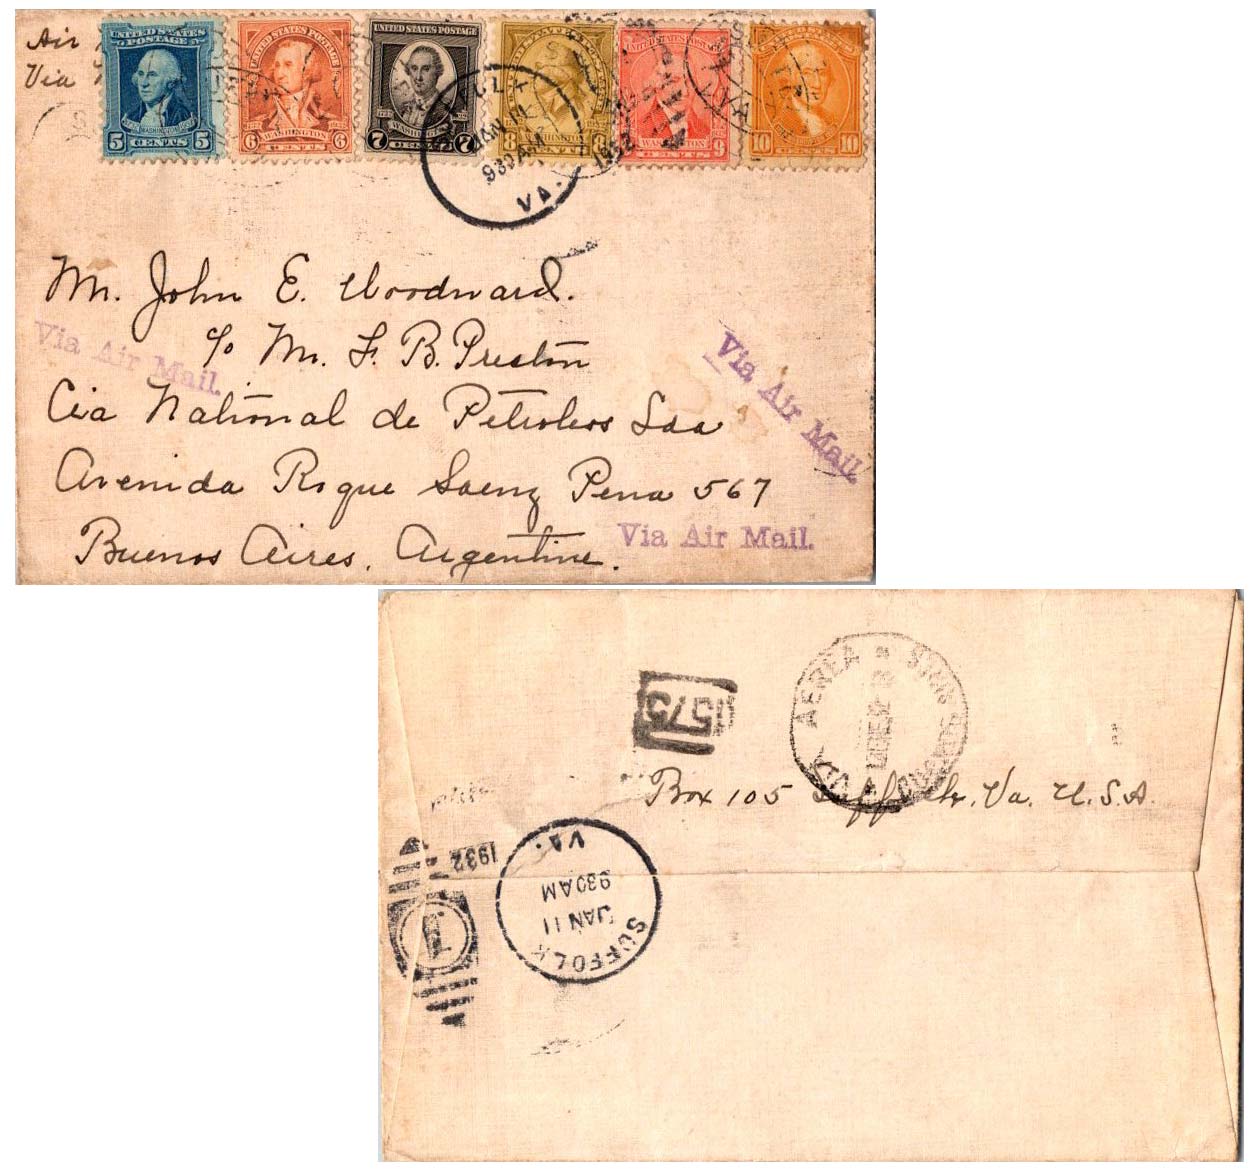 Air
Via
UNITED STATES POSTAGE
WASHINGTON
5 CENTS 5
UNITED STATES POSTAGE
WASHINGTON
6 CENTS 6
UNITED STATES POSTAGE
WASHINGTON
7 CENTS 7
8 CENTS 8
UNITED STATES POSTAGE
WASHINGTON
9 CENTS 9
10 CENTS 10
JAN 11
930 AM
VA.
1932
Mr. John E. Woodward.
c/o Mr. F. B. Preston
Via Air Mail.
Via Air Mail.
Cia National de Petroleos Ldaa
Avenida Roque Saenz Pena 567
Via Air Mail.
Buenos Aires, Argentine.
1573
VIA AEREA
Box 105 Suffolk, Va. U.S.A.
SUFFOLK
JAN 11
930 AM
VA.
1932
1